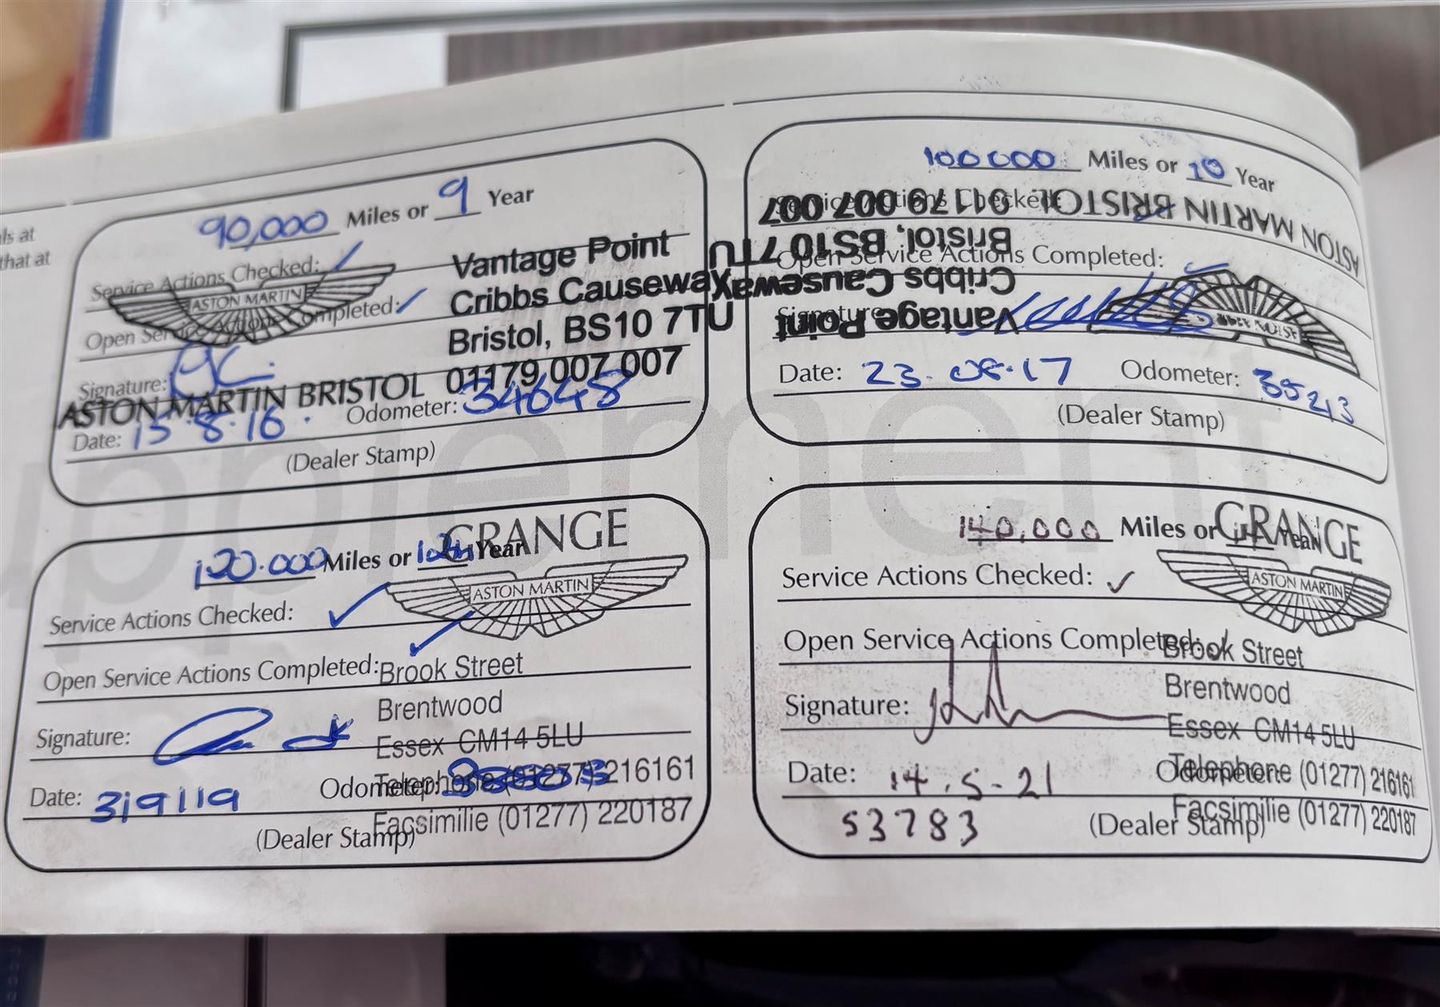 ls at
that at
90,000 Miles or 9 Year
Service Actions Checked:
ASTON MARTIN
Open Service Actions Completed:
Signature:
Vantage Point
Cribbs Causeway
Bristol, BS10 7TU
01179 007 007
ASTON MARTIN BRISTOL
Date: 15.8.16. Odometer: 34648
(Dealer Stamp)
100000 Miles or 10 Year
Service Actions Checked:
Open Service Actions Completed:
Signature:
ASTON MARTIN BRISTOL 01179 007 007
Bristol, BS10 7TU
Cribbs Causeway
Vantage Point
Date: 23.08.17 Odometer: 35213
(Dealer Stamp)
supplement
120.000 Miles or Year
GRANGE
ASTON MARTIN
Service Actions Checked:
Open Service Actions Completed:
Brook Street
Brentwood
Signature:
Essex CM14 5LU
Telephone (01277) 216161
Date: 3/9/19 Odometer:
Facsimilie (01277) 220187
(Dealer Stamp)
140,000 Miles or Year
GRANGE
ASTON MARTIN
Service Actions Checked:
Open Service Actions Completed:
Brook Street
Brentwood
Signature:
Essex CM14 5LU
Date: 14.5.21 Odometer:
Telephone (01277) 216161
53783
Facsimilie (01277) 220187
(Dealer Stamp)